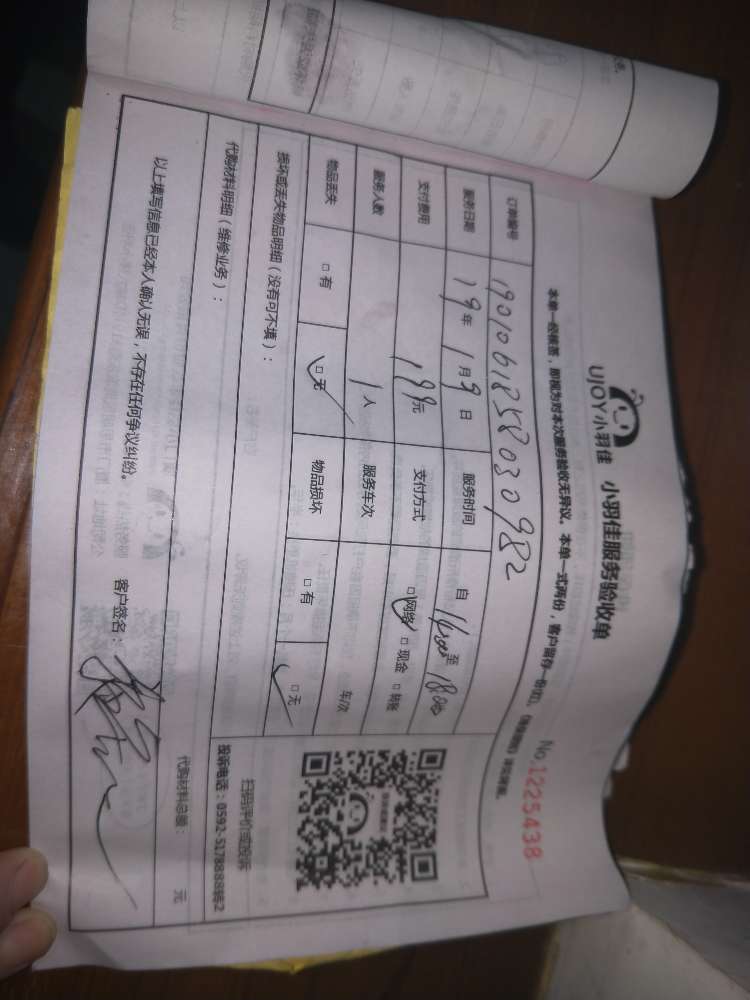 UJOY小羽佳 小羽佳服务验收单 No.1225438
本单一经核签，即视为对本次服务验收无异议。本单一式两份，客户留存一份
订单编号 19010618258030982
服务日期 19年 1月 9日 服务时间 自 14:00 至 18:00
支付费用 199元 支付方式 □网络 □现金 □转账
服务人数 1人 服务车次 车/次
物品丢失 □有 □无 物品损坏 □有 □无
损坏或丢失物品明细（没有可不填）：
扫码评价或投诉
投诉电话：0592-5178888转2
代购材料明细（维修业务）：
代购材料总额： 元
以上填写信息已经本人确认无误，不存在任何争议纠纷。 客户签名：